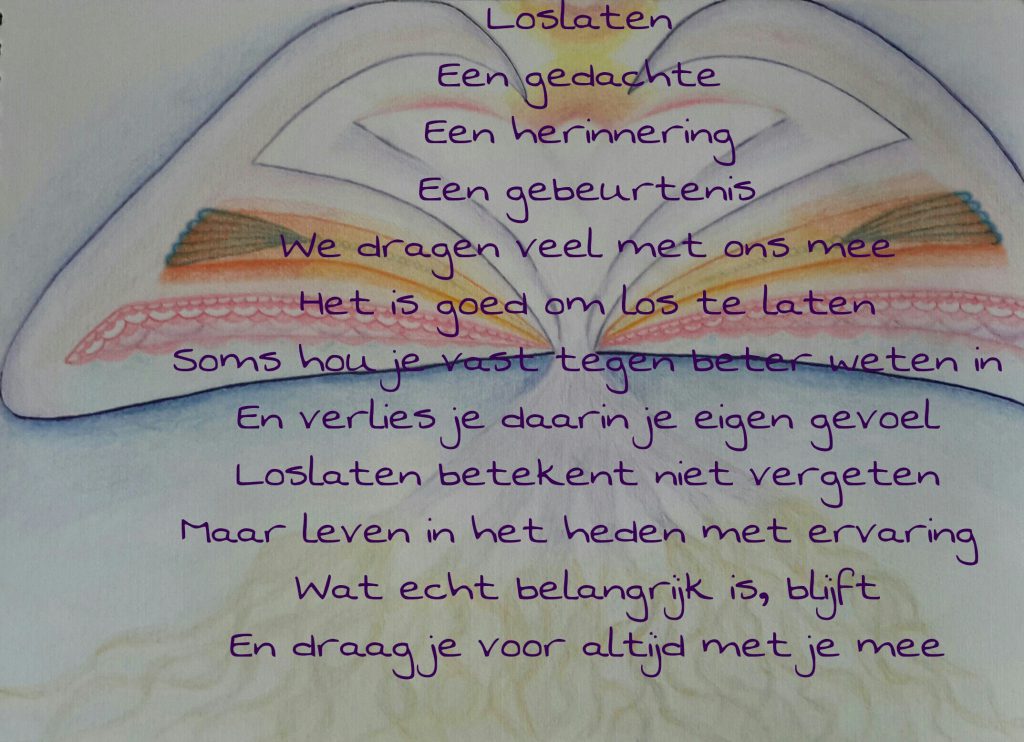 Loslaten
Een gedachte
Een herinnering
Een gebeurtenis
We dragen veel met ons mee
Het is goed om los te laten
Soms hou je vast tegen beter weten in
En verlies je daarin je eigen gevoel
Loslaten betekent niet vergeten
Maar leven in het heden met ervaring
Wat echt belangrijk is, blijft
En draag je voor altijd met je mee